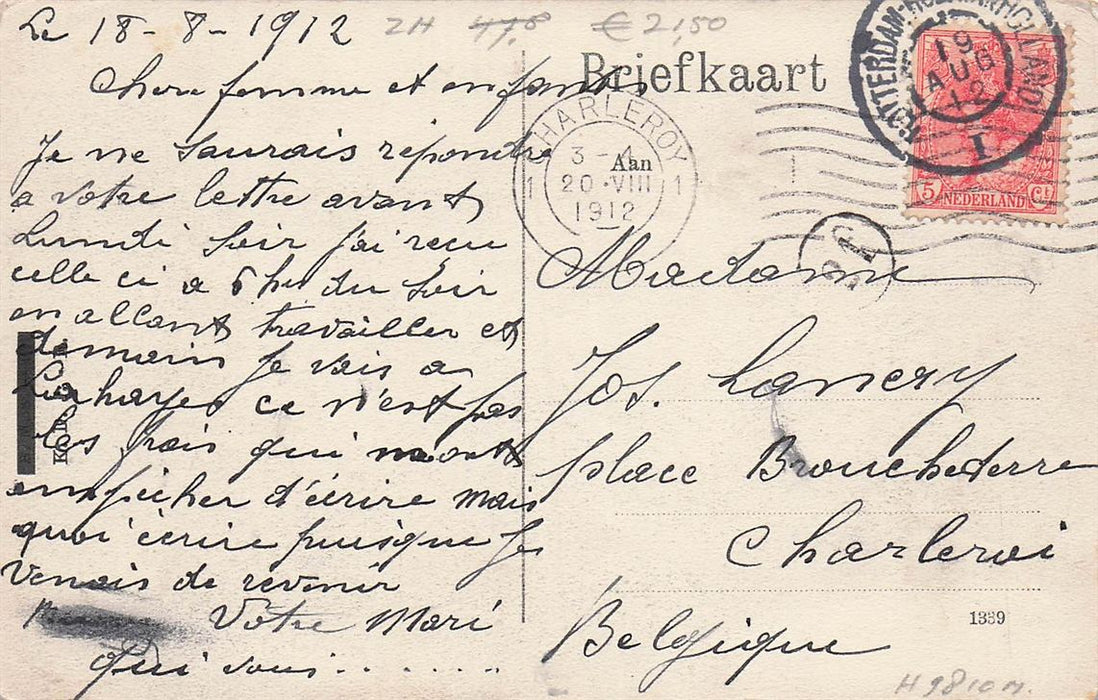 Le 18-8-1912
Chere femme et enfants
Je ne saurais répondre
a votre lettre avant
Lundi soir j'ai reçu
celle ci a 6 h du soir
en allant travailler et
demain je vais a
La hayes ce n'est pas
les frais qui m'ont
empécher d'écrire mais
quoi écrire puisque je
venais de revenir
Votre Mari
qui vous.......
ZH 47.8 € 2,50
Briefkaart
Aan
CHARLEROY
3-4
1 20·VIII 1
1912
ROTTERDAM-
19
AUG
12
I
5 Ct
NEDERLAND
Madame
Jos. Lancry
place Brouchederre
Charleroi
Belgique
1339
H9810m